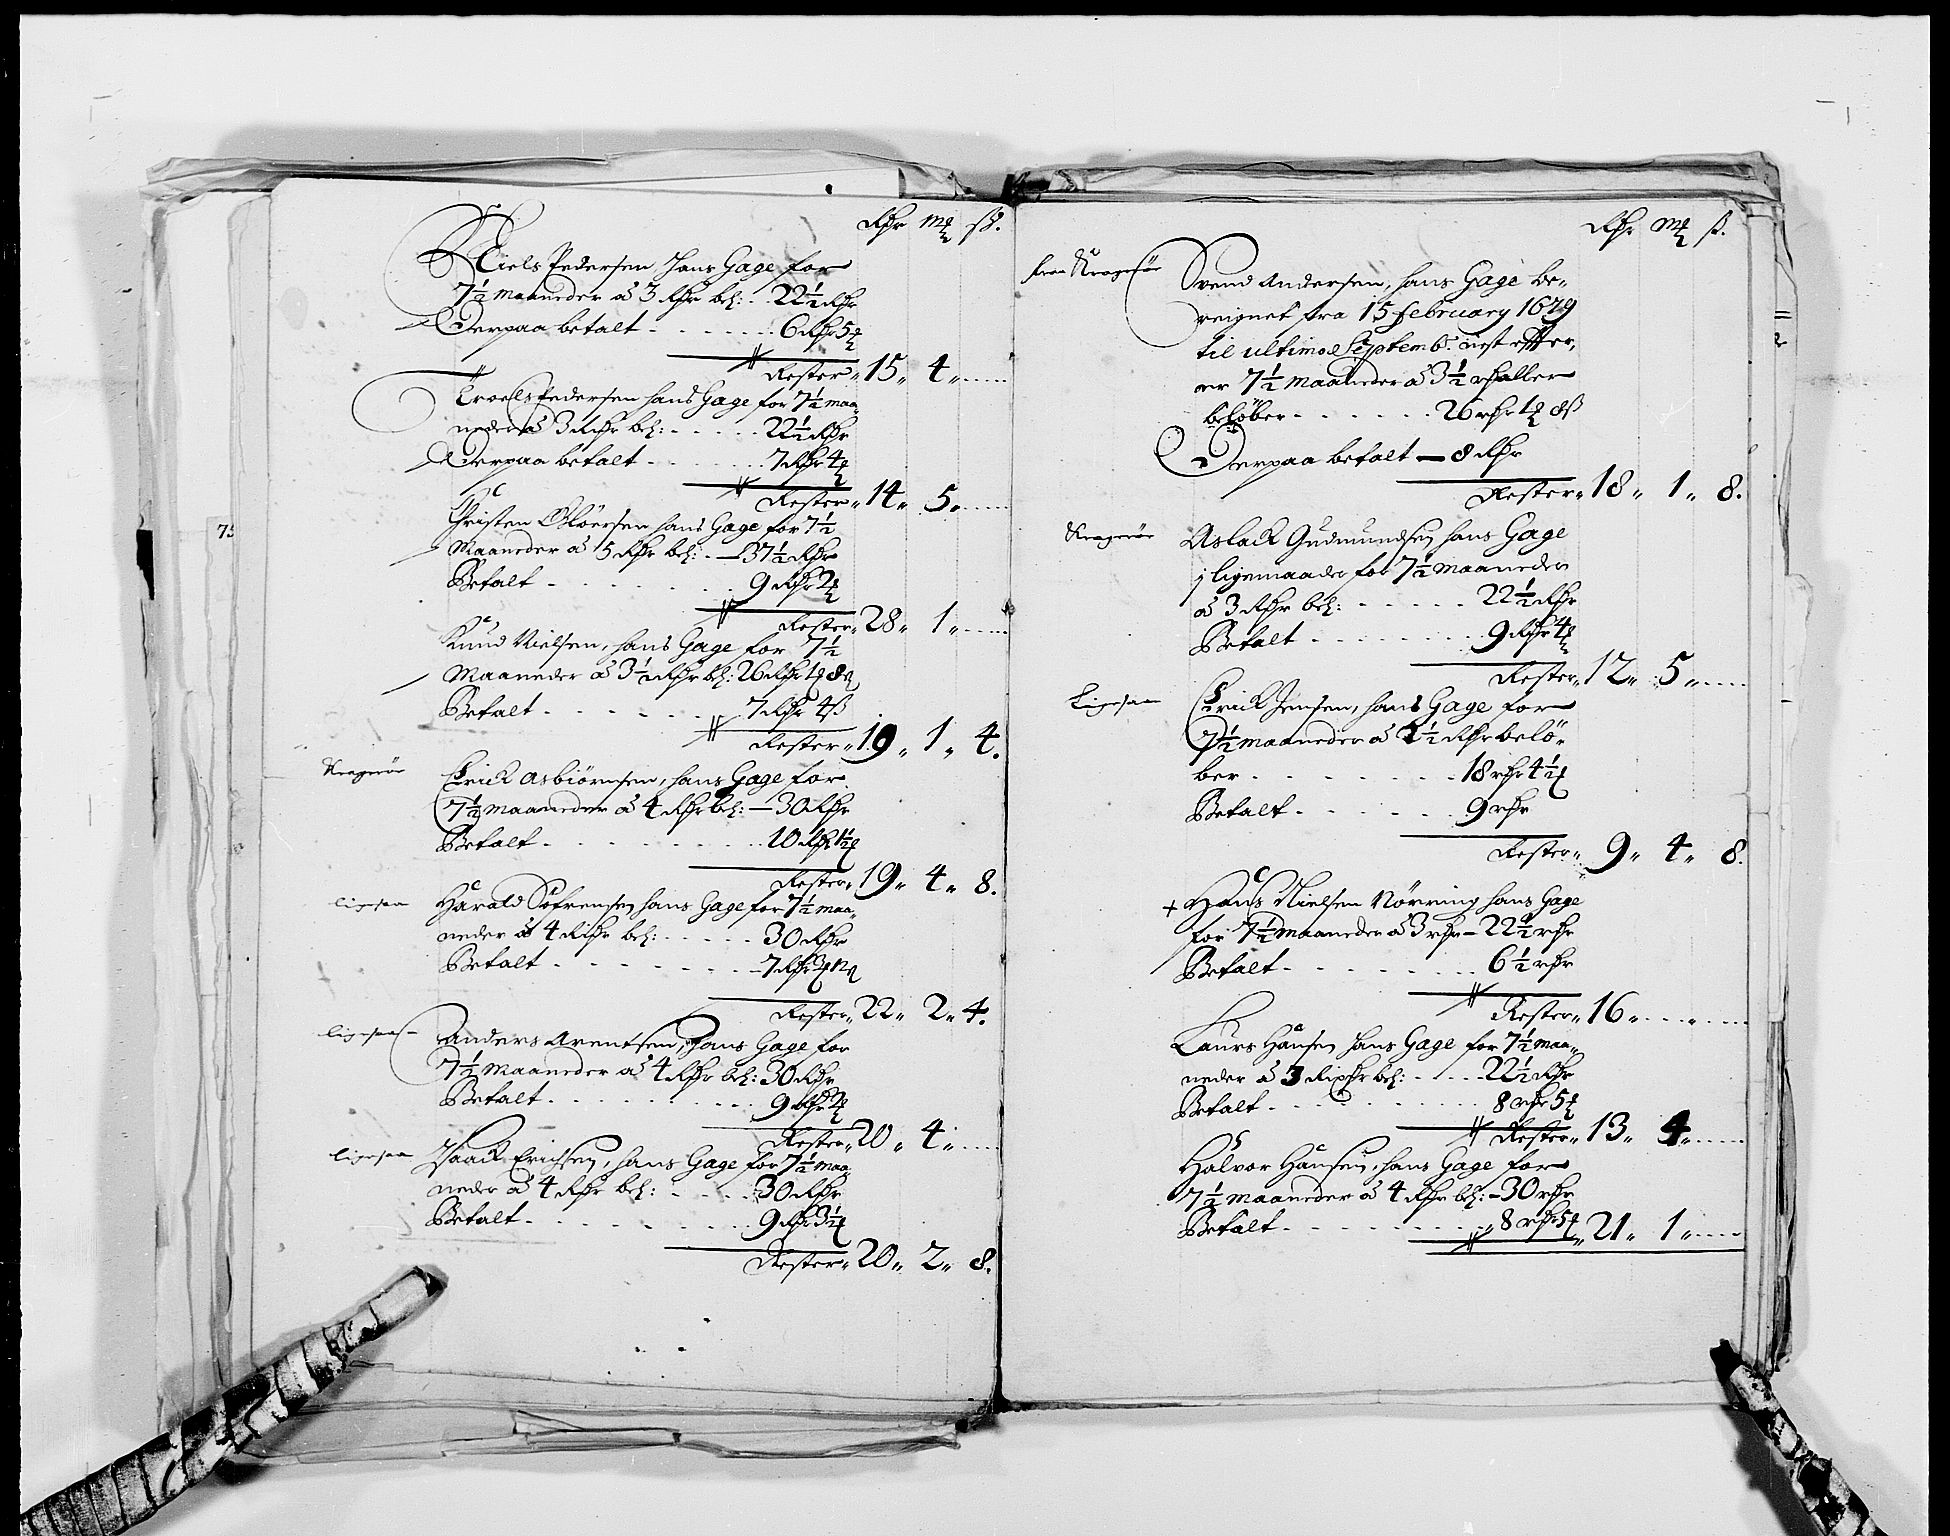 Rdr mß ß.
Niels Pedersen, hans Gage for
7½ maaneder à 3 Rdr bel: 22½ Rdr
Derpaa betalt - - - - 6 Rdr 5 mß
Rester 15 „ 4 „
Troels Pedersen hans Gage for 7½ maa-
neder à 3 Rdr bel: - - - 22½ Rdr
Derpaa betalt - - - - 7 Rdr 4 mß
Rester „ 14 „ 5 „
Christen Olöersen hans Gage for 7½
Maaneder à 5 Rdr bel: - 37½ Rdr
Betalt - - - - 9 Rdr 2 mß
Rester „ 28 „ 1 „
Knud Nielsen, hans Gage for 7½
Maaneder à 3½ Rdr bel: 26 Rdr 1 mß 8 ß
Betalt - - - - 7 Rdr 4 ß
Rester „ 19 „ 1 „ 4.
Kragerör
Erick Asbiörnsen, hans Gage for
7½ maaneder à 4 Rdr bel: - 30 Rdr
Betalt - - - - 10 Rdr 1½ mß
Rester „ 19 „ 4 „ 8.
ligesaa
Harald Sofrensen hans Gage for 7½ maa-
neder à 4 Rdr bel: - - - 30 Rdr
Betalt - - - - 7 Rdr 3 mß 12 ß
Rester „ 22 „ 2 „ 4.
ligesaa
Anders Arentsen, hans Gage for
7½ Maaneder à 4 Rdr bel: 30 Rdr
Betalt - - - - 9 Rdr 2 mß
Rester „ 20 „ 4 „
ligesaa
Isaack Erichsen, hans Gage for 7½ maa-
neder à 4 Rdr bel: - - - 30 Rdr
Betalt - - - - 9 Rdr 3½ mß
Rester „ 20 „ 2 „ 8.
75
Rdr mß ß.
fraa Kragerör
Svend Andersen, hans Gage be-
reignet fra 15 february 1679
til ultimo Septemb: nest effter,
er 7½ maaneder à 3½ rdaller
belöber - - - - 26 rdr 1 mß 8 ß
Derpaa betalt - 8 Rdr
Rester „ 18 „ 1 „ 8.
Kragerör
Aslack Gudmundsen hans Gage
j ligemaader for 7½ maaneder
à 3 Rdr bel: - - - - 22½ Rdr
Betalt - - - - 9 Rdr 4 mß
Rester „ 12 „ 5 „
Ligesaa
Erick Jensen, hans Gage for
7½ maaneder à 2½ Rdr belö-
ber - - - - 18 rdr 4½ mß
Betalt - - - - 9 rdr
Rester „ 9 „ 4 „ 8.
+ Hans Nielsen Nörring hans Gage
for 7½ maaneder à 3 rdr - 22½ rdr
Betalt - - - - 6½ rdr
Rester „ 16 „
Laurs Hansen hans Gage for 7½ maa-
neder à 3 Rixdr bel: - - - 22½ Rdr
Betalt - - - - 8 rdr 5 mß
Rester „ 13 „ 4 „
Halvor Hansen, hans Gage for
7½ maaneder à 4 Rdr bel: - 30 rdr
Betalt - - - - 8 rdr 5 mß „ 21 „ 1 „